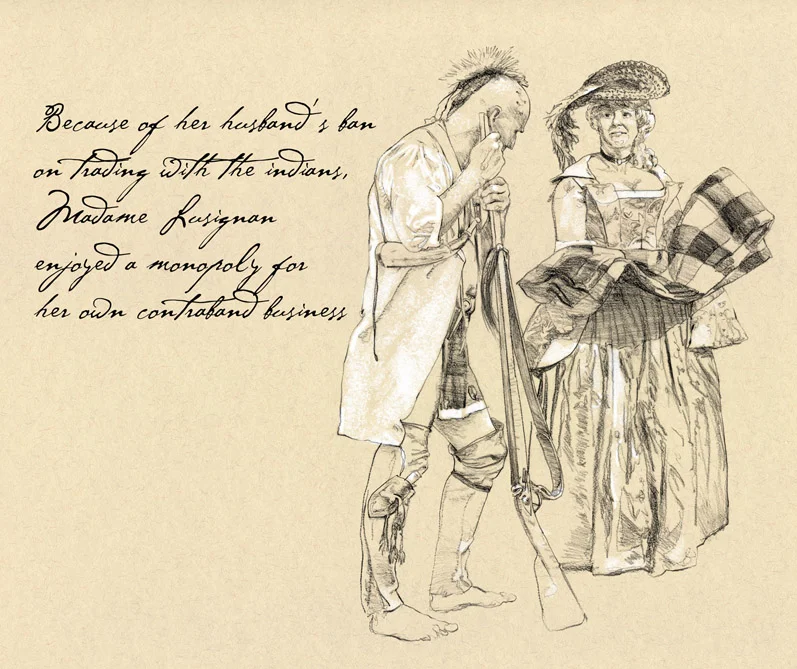 Because of her husband's ban
on trading with the indians,
Madame Lusignan
enjoyed a monopoly for
her own contraband business